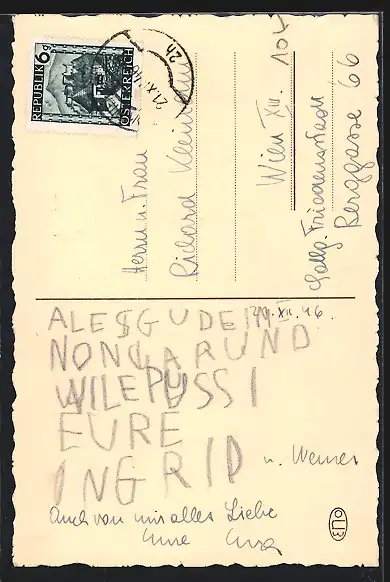 REPUBLIK 6g
ÖSTERREICH
21.XII.
2h
Herrn u. Frau
Richard
Wien XIII. 104
Siedg. Friedensstadt
Berggasse 66
29.XII.46.
ALESGUDEIM
NONGARUND
WILEPUSSI
EURE
INGRID
u. Werner
Auch von mir alles Liebe
Eure
OLB